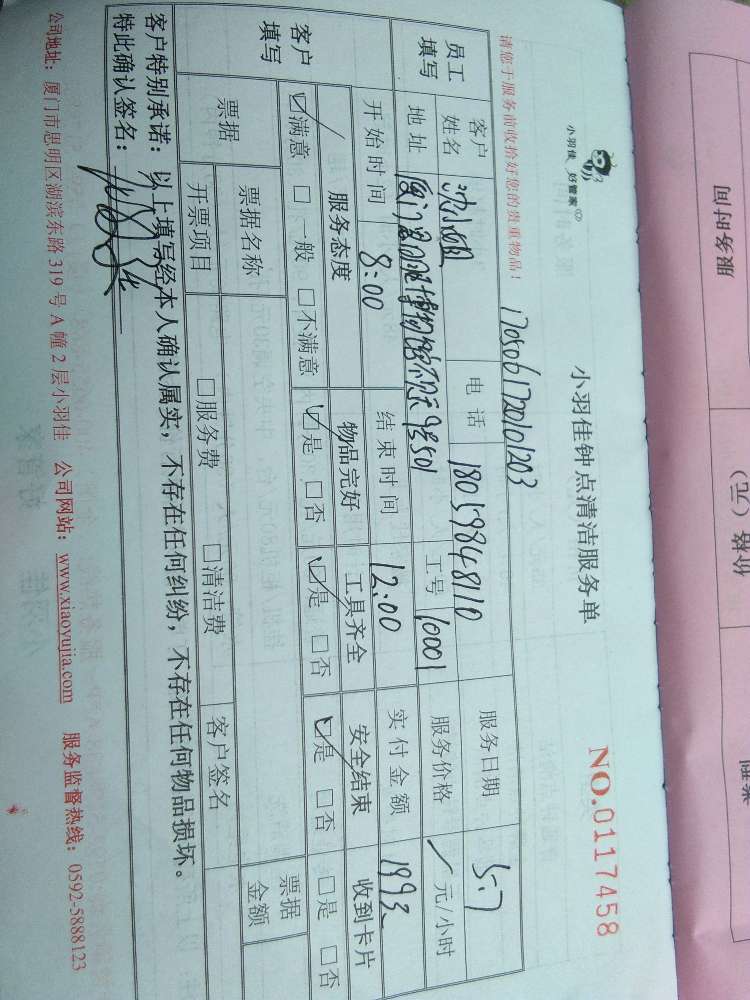 服务时间
价格（元）
小羽佳 好管家
小羽佳钟点清洁服务单
NO.0117458
请您于服务前收拾好您的贵重物品！
1705061720101203
员工填写
客户姓名 沈小姐 电话 18059848110 服务日期 5.7
地址 501 工号 10001 服务价格 / 元/小时
开始时间 8:00 结束时间 12:00 实付金额 1993
客户填写
服务态度 物品完好 工具齐全 安全结束 收到卡片
☑满意 □一般 □不满意 ☑是 □否 ☑是 □否 ☑是 □否 □是 □否
票据 票据名称 票据金额
开票项目 □服务费 □清洁费 客户签名
客户特别承诺：以上填写经本人确认属实，不存在任何纠纷，不存在任何物品损坏。
特此确认签名：
公司地址：厦门市思明区湖滨东路319号A幢2层小羽佳 公司网站：www.xiaoyujia.com 服务监督热线：0592-5888123